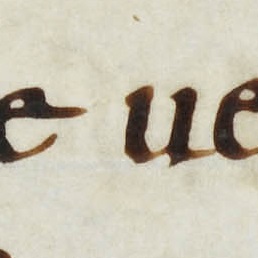 e ue